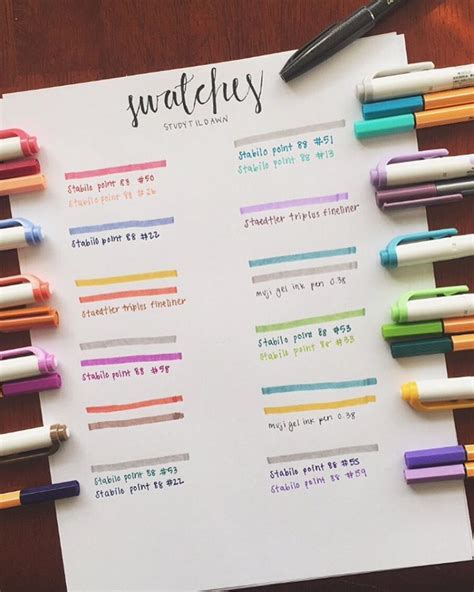 swatches
STUDYTILDAWN
Stabilo point 88 #50
Stabilo point 88 #26
Stabilo point 88 #22
Staedtler triplus fineliner
Stabilo point 88 #58
Stabilo point 88 #53
Stabilo point 88 #22
Stabilo point 88 #51
Stabilo point 88 #13
Staedtler triplus fineliner
muji gel ink pen 0.38
Stabilo point 88 #53
Stabilo point 88 #33
muji gel ink pen 0.38
Stabilo point 88 #55
Stabilo point 88 #59